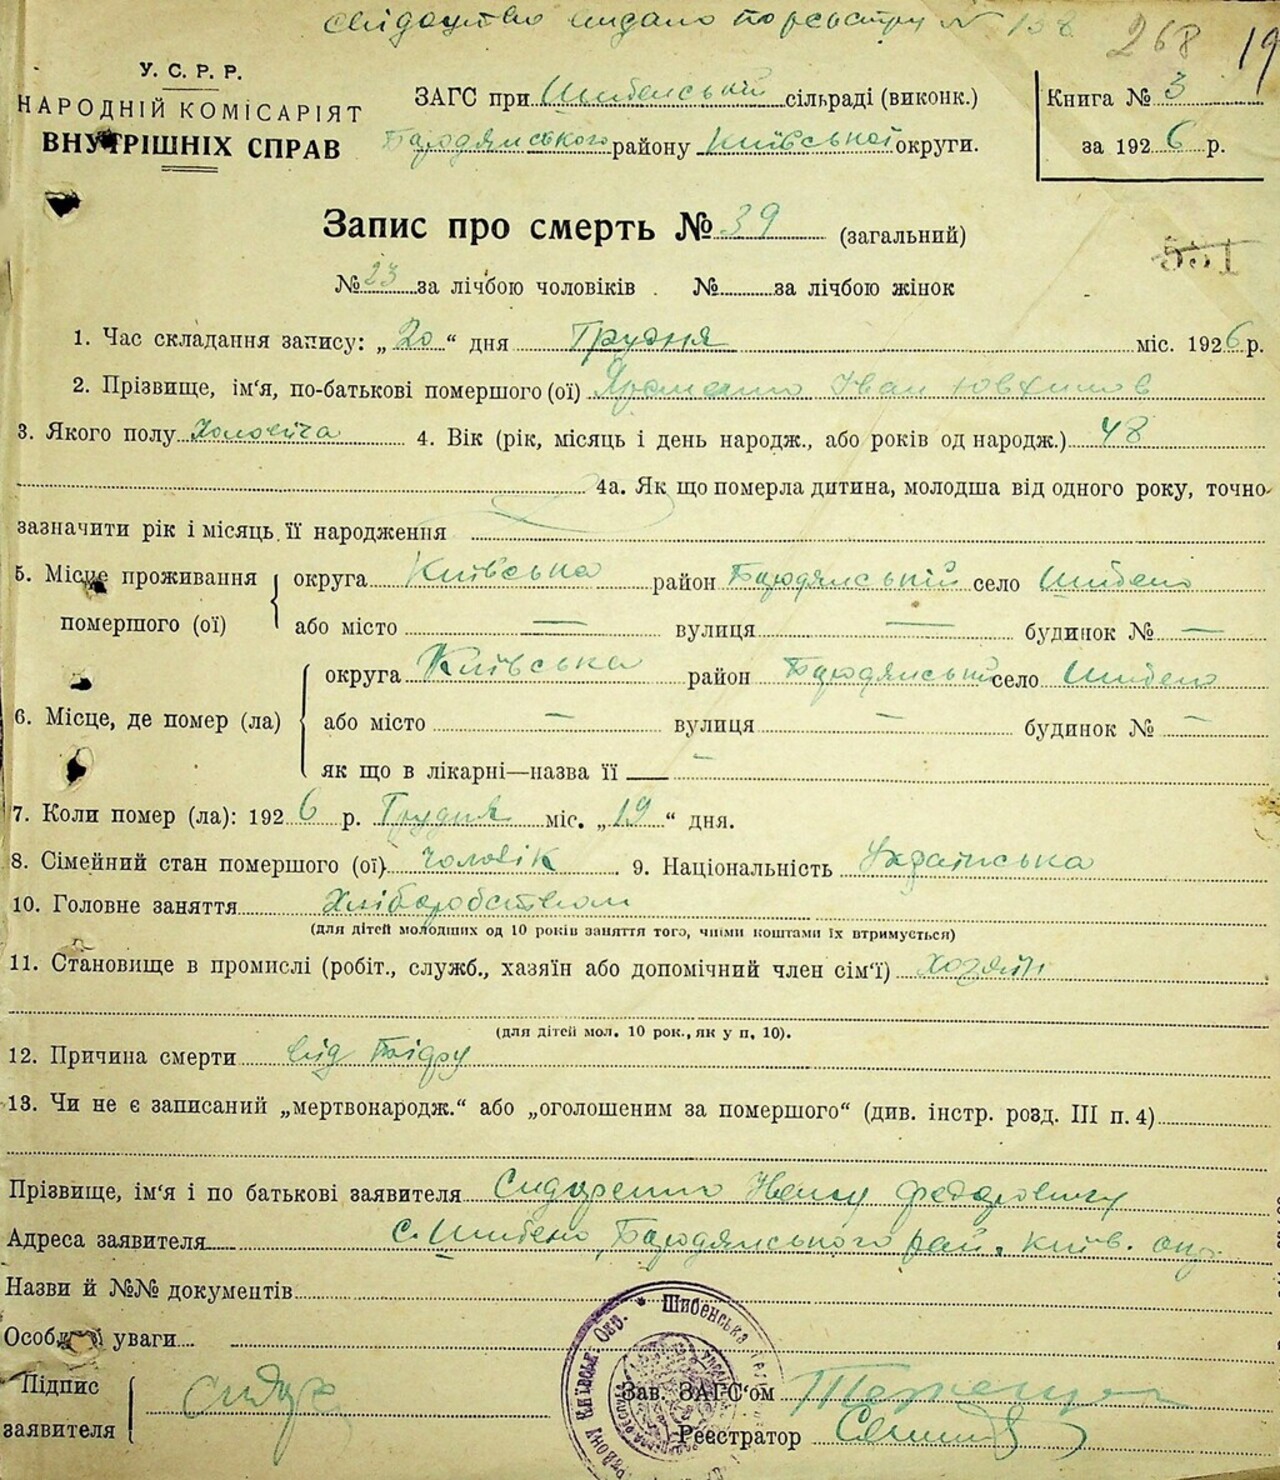 свідоцтво видано по реєстру № 138
268 19
У. С. Р. Р.
НАРОДНІЙ КОМІСАРІЯТ
ВНУТРІШНІХ СПРАВ
ЗАГС при Шибенській сільраді (виконк.)
Бородянського району Київської округи.
Книга № 3
за 1926 р.
Запис про смерть № 39 (загальний)
551
№ 23 за лічбою чоловіків . № за лічбою жінок
1. Час складання запису: „20“ дня Грудня міс. 1926 р.
2. Прізвище, ім‘я, по-батькові помершого (ої) Яременко Іван Ювхимов
3. Якого полу Чоловіча 4. Вік (рік, місяць і день народж., або років од народж.) 48
4а. Як що померла дитина, молодша від одного року, точно
зазначити рік і місяць її народження
5. Місце проживання помершого (ої) { округа Київська район Бородянській село Шибено
або місто — вулиця — будинок № —
6. Місце, де помер (ла) { округа Київська район Бородянській село Шибено
або місто — вулиця — будинок № —
як що в лікарні—назва її —
7. Коли помер (ла): 1926 р. Грудня міс. „19“ дня.
8. Сімейний стан помершого (ої) чоловік 9. Національність Українська
10. Головне заняття Хліборобством
(для дітей молодших од 10 років заняття того, чиїми коштами їх втримується)
11. Становище в промислі (робіт., служб., хазяїн або допомічний член сім‘ї) хозяїн
(для дітей мол. 10 рок., як у п. 10).
12. Причина смерти від
13. Чи не є записаний „мертвонародж.“ або „оголошеним за помершого“ (див. інстр. розд. III п. 4)
Прізвище, ім‘я і по батькові заявителя Сидоренко Федоровичу
Адреса заявителя с. Шибено, Бородянського рай. Київ. окр.
Назви й №№ документів
Особливі уваги
Підпис заявителя
Зав. ЗАГС‘ом
Реєстратор
Шибенська
району Київськ. Окр.